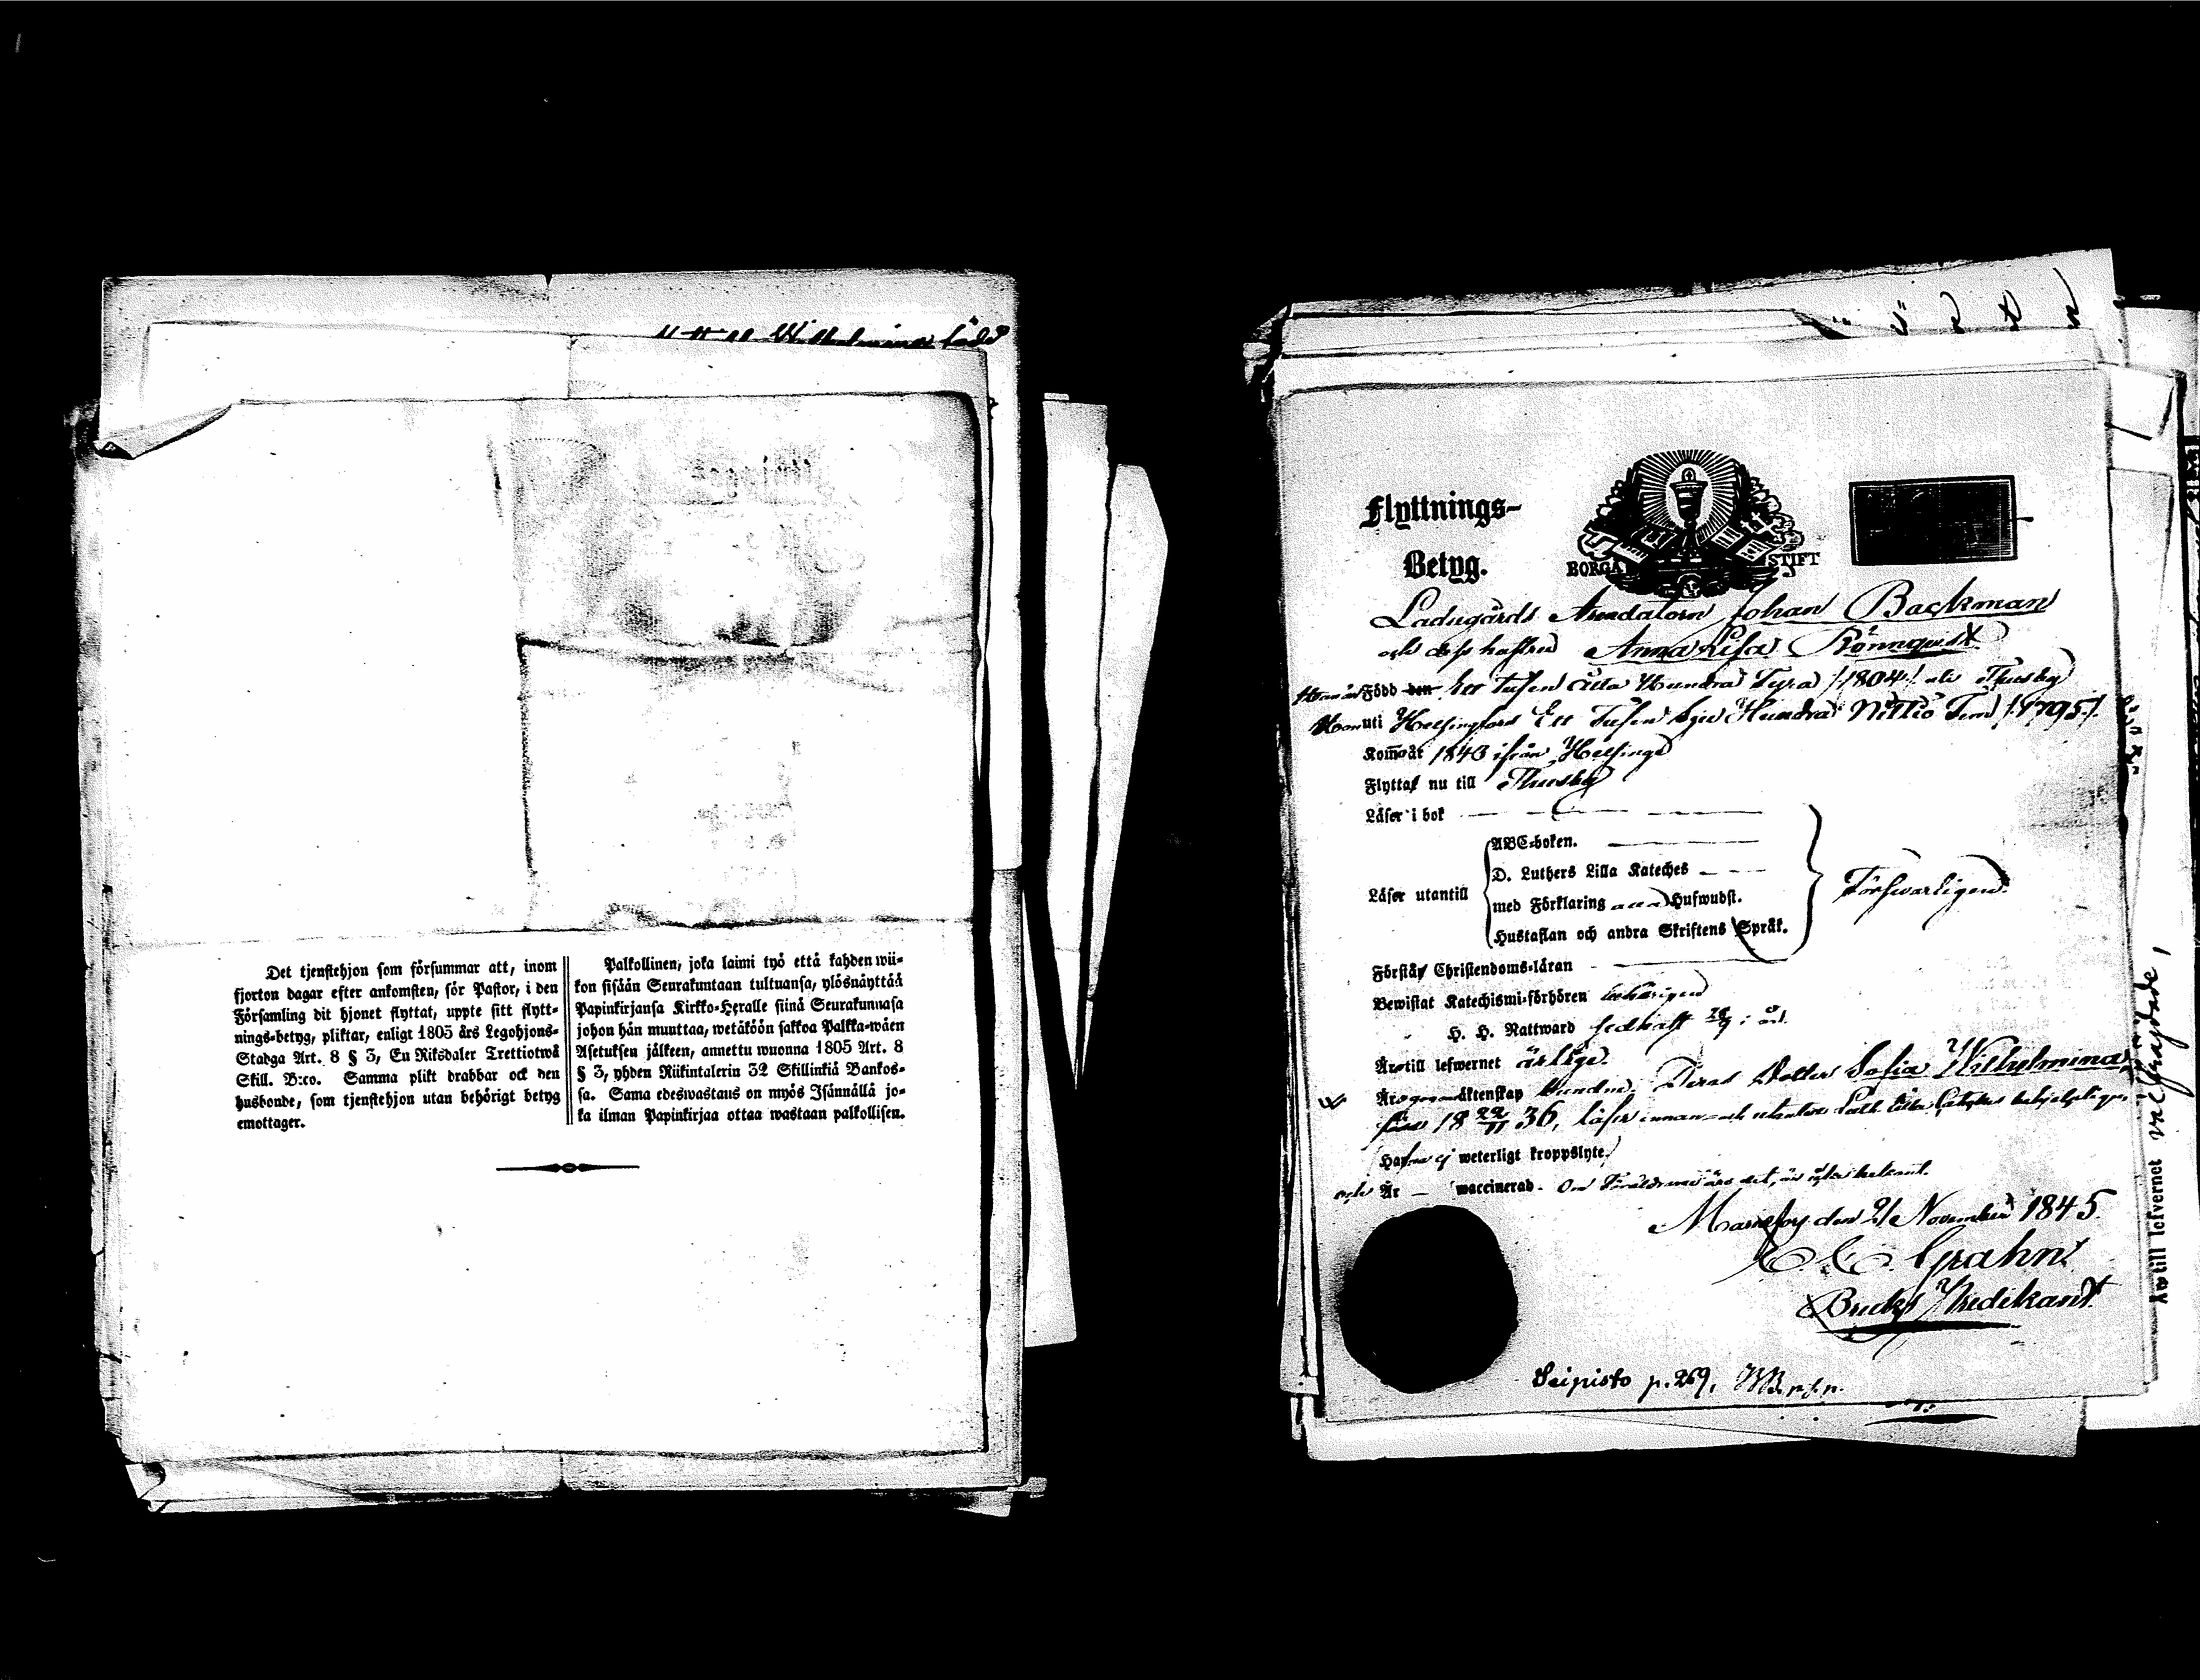 Wilhelmina född
Det tjenstehjon som försummar att, inom
fjorton dagar efter ankomsten, för Pastor, i den
Församling dit hjonet flyttat, uppte sitt flytt-
nings-betyg, pliktar, enligt 1805 års Legohjons-
Stadga Art. 8 § 3, En Riksdaler Trettiotwå
Skill. B:co. Samma plikt drabbar ock den
husbonde, som tjenstehjon utan behörigt betyg
emottager.
Palkollinen, joka laimi työ että kahden wii-
kon sisään Seurakuntaan tultuansa, ylösnäyttää
Papinkirjansa Kirkko-Herralle siinä Seurakunnasa
johon hän muuttaa, wetäköön sakkoa Palkka-wäen
Asetuksen jälkeen, annettu wuonna 1805 Art. 8
§ 3, yhden Riikintalerin 32 Skillinkiä Bankos-
sa. Sama edeswastaus on myös Isännällä jo-
ka ilman Papinkirjaa ottaa wastaan palkollisen.
Flyttnings-
Betyg.
BORGÅ STIFT
Ladugårds Arendatorn Johan Backman
och dess hustru Anna Lisa Rönnqvist
Han är Född den Ett tusen åtta Hundra Fyra /:1804:/ uti Thusby
Hon uti Helsingfors Ett Tusen Sju Hundra Nittio Fem /:1795:/.
Kom år 1843 ifrån Helsinge
Flytta nu till Thusby
Läser i bok
Läser utantill
ABC-boken.
D. Luthers Lilla Kateches
med Förklaring Hufwudst.
Hustaflan och andra Skriftens Språk.
Förswarligen.
Förstår Christendoms-läran
Bewistat Katechismi-förhören behörigen
H. H. Nattward sednast 28/9 i år.
Äro till lefwernet ärlige.
Äro äktenskap bundne. Deras Dotter Sofia Wilhelmina,
född 18 22/11 36, läser innan och utantill Luth. lilla
Hafwa ej weterligt kroppslyte.
och Är waccinerad. Om Föräldrarne äro det, är icke bekant.
Mariefors den 21 November 1845.
Grahn.
Bruks Predikant.
Seipisto p. 269.
Äro till lefvernet välfräjdade,